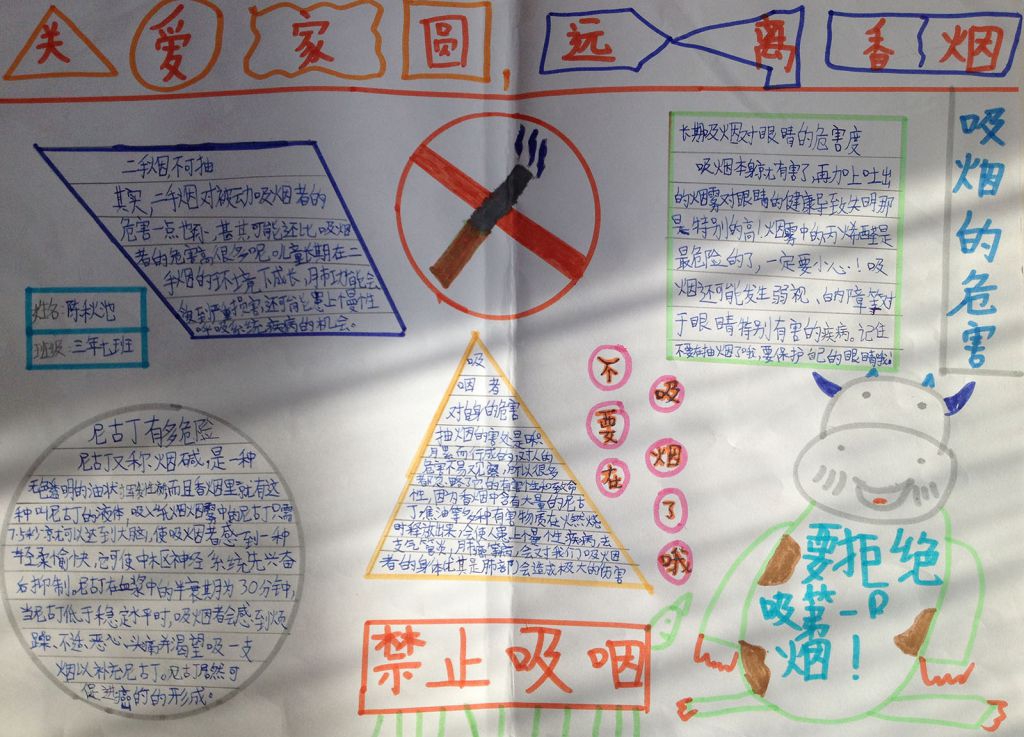 关爱家圆，远离香烟
二手烟，不可抽
其实，二手烟对被动吸烟者的
危害一点也不小，甚其可能还比吸烟
者的危害高很多呢。儿童长期在二
手烟的环境下成长，肺功能会
受到严重损害还可能患上个慢性
呼吸系统疾病的机会。
姓名：陈秋池
班级：三年七班
长期吸烟对眼睛的危害度
吸烟本身就有害了，再加上吐出
的烟雾对眼睛的健康导致失明那
是特别的高！烟雾中的丙烯醛是
最危险的了，一定要小心！吸
烟还可能发生弱视、白内障等对
于眼睛特别有害的疾病。记住
不要在抽烟了哦，要保护自己的眼睛哦！
吸烟的危害
尼古丁有多危险
尼古丁又称烟碱，是一种
无色透明的油状挥发性液而且香烟里就有这
种叫尼古丁的液体，吸入纸烟烟雾中的尼古丁只需
7.5秒就可以达到大脑，使吸烟者感到一种
轻柔愉快，它可使中枢神经系统先兴奋
后抑制。尼古丁在血浆中的半衰期为30分钟，
当尼古丁低于稳定水平时，吸烟者会感到烦
躁、不适、恶心、头痛并渴望吸一支
烟以补充尼古丁。尼古丁居然可
促进癌的的形成。
吸
咽者
对自身的危害
抽烟的害处是日积
月累而行成的，没人的
危害不易观察，所以很多
都忽略了它的有害性和致命
性，因为香烟中含有大量的尼古
丁焦油等多种有害物质在火燃烧
叶释放出来，会使人患上个慢性疾病，去
支气管炎，肺癌等症，会对我们吸烟
者的身体尤其是肺部会造成极大的伤害
不要在吸烟了哦
禁止吸咽
要拒绝
吸第一口
烟！